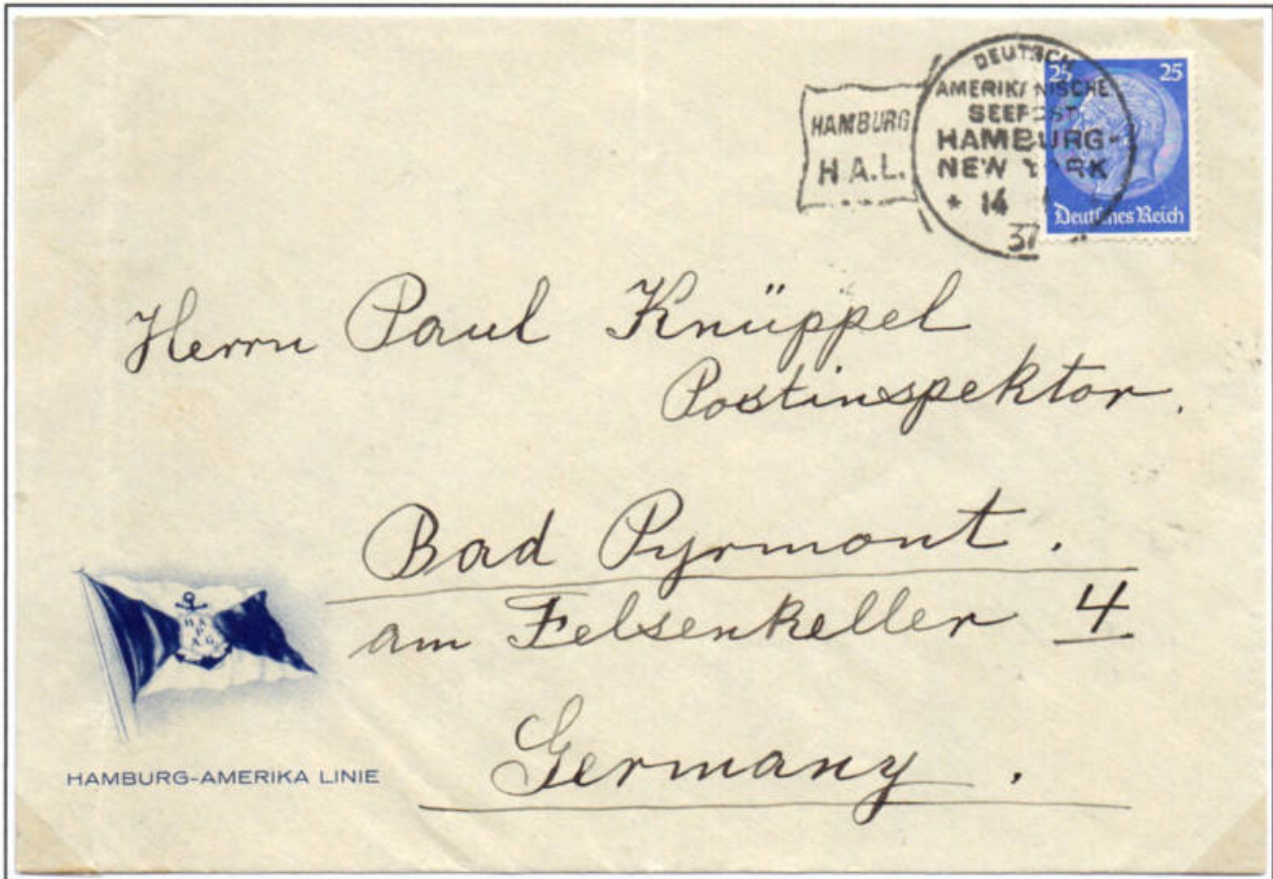 DEUTSCH
AMERIKANISCHE
SEEPOST
HAMBURG-
NEW YORK
* 14
37
HAMBURG
H.A.L.
25 25
Deutsches Reich
Herrn Paul Knüppel
Postinspektor.
Bad Pyrmont.
am Felsenkeller 4
Germany.
HAPAG
HAMBURG-AMERIKA LINIE